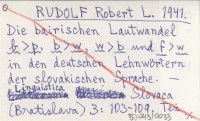 RUDOLF Robert L. 1941.
Die bairischen Lautwandel
b > p, b > w, w > b und f > w
in den deutschen Lehnwörtern
der slovakischen Sprache. -
Linguistica
Slovaca
(Bratislava) 3: 103-109, Tez